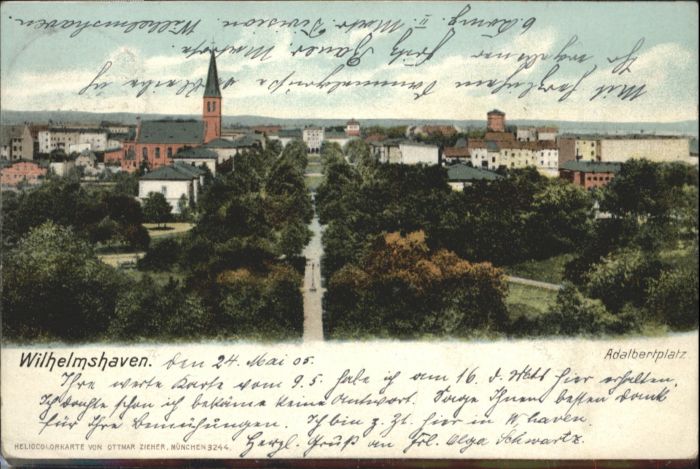 Wilhelmshaven. den 24. Mai 05.
Adalbertplatz.
Ihre werte Karte vom 9.5. habe ich am 16. d. Mts hier erhalten.
Ich dachte schon ich bekäme keine Antwort. Sage Ihnen besten Dank
für Ihre Bemühungen. Ich bin z. Zt. hier in W'haven
Herzl. Gruß an Frl. Olga Schwartz.
HELIOCOLORKARTE VON OTTMAR ZIEHER, MÜNCHEN 3244.
Mit herzlichem
verbleibe ich
Ihr ergebener Fritz
II. Matr. Division Wilhelmshaven.